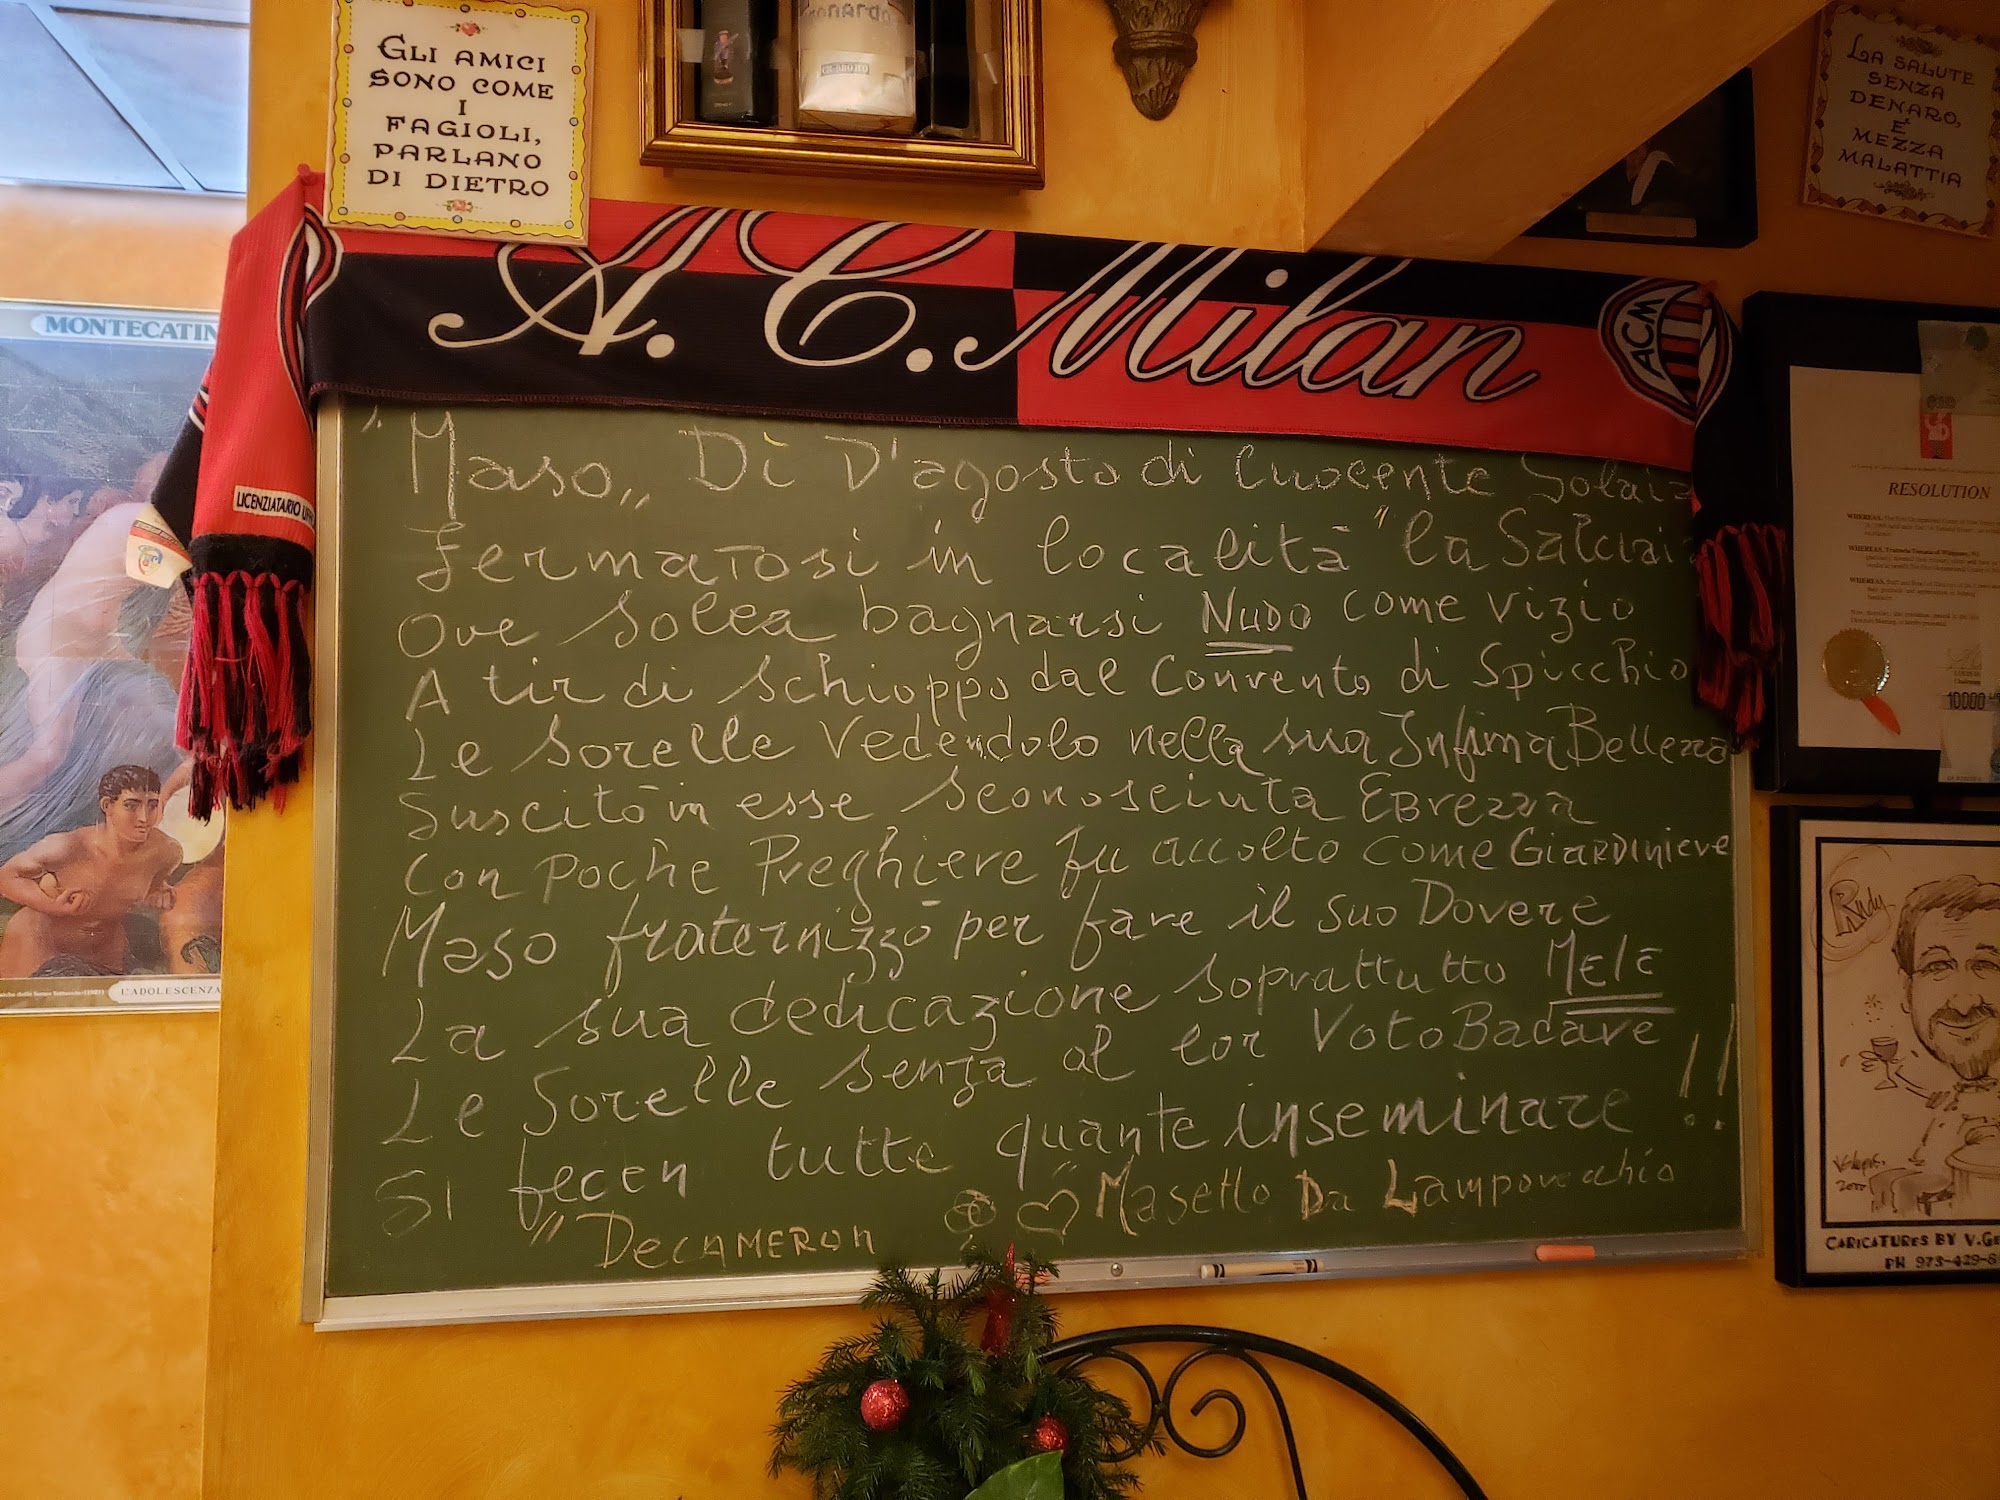 GLI AMICI
SONO COME
I
FAGIOLI,
PARLANO
DI DIETRO
LA SALUTE
SENZA
DENARO,
E'
MEZZA
MALATTIA
A.C. Milan
ACM
MONTECATIN
LICENZIATARIO UFF
Maso,, Dì D'agosto di Cuocente Solaia
fermatosi in località "la Salciaia
Ove solea bagnarsi NUDO come vizio
A tir di schioppo dal Convento di Spicchio
Le Sorelle Vedendolo nella sua Infima Bellezza
Suscitò in esse sconosciuta EBrezza
Con poche Preghiere fu accolto come GIARDINIEVE
Maso fraternizzò per fare il suo Dovere
La sua dedicazione soprattutto MELE
Le Sorelle senza al lor Voto Badave
SI fecen tutte quante inseminare !!
" DECAMERON " Masetto Da Lampovecchio
L'ADOLESCENZA
RESOLUTION
WHEREAS,
WHEREAS,
WHEREAS,
10000
Rudy
CARICATURES BY V.GE
PH 973-429-6